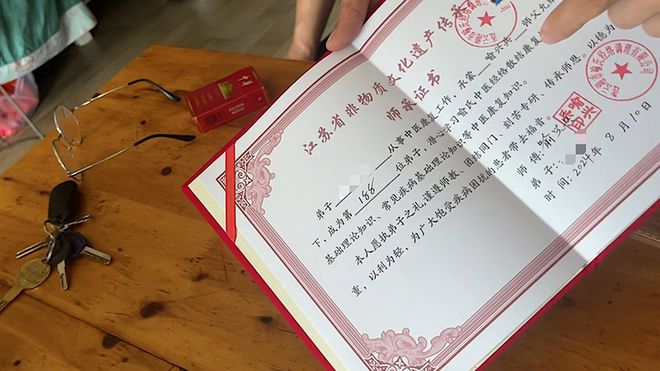 江苏省非物质文化遗产传承
师承证书
弟子 从事中医康复工作，承蒙 喻兴兵 师父允
下，成为第 188 位弟子，潜心学习喻氏中医经络散结康复
基础理论知识、常见疾病基础理论知识等中医康复知识。
本人愿执弟子之礼，谨遵师教，团结同门，刻苦专研，传承师恩。以德为
重，以利为轻，为广大饱受疾病困扰的患者带去福音。
师傅：
弟子：
时间：2024年8月10日